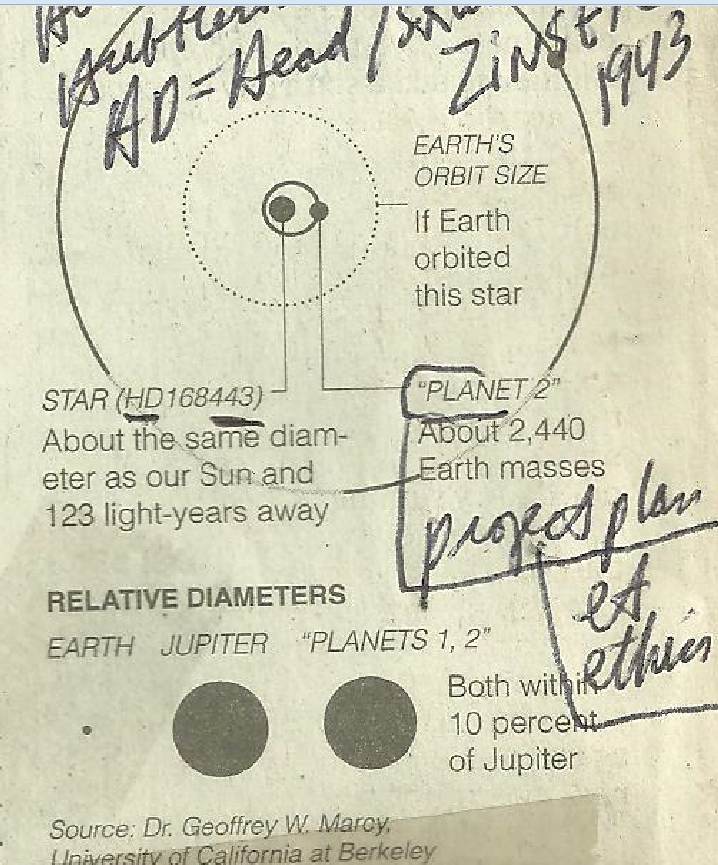 AD = Head /
1943
EARTH'S
ORBIT SIZE
If Earth
orbited
this star
STAR (HD168443)
About the same diam-
eter as our Sun and
123 light-years away
"PLANET 2"
About 2,440
Earth masses
project plan
et
RELATIVE DIAMETERS
EARTH JUPITER "PLANETS 1, 2"
Both within
10 percent
of Jupiter
Source: Dr. Geoffrey W. Marcy,
University of California at Berkeley